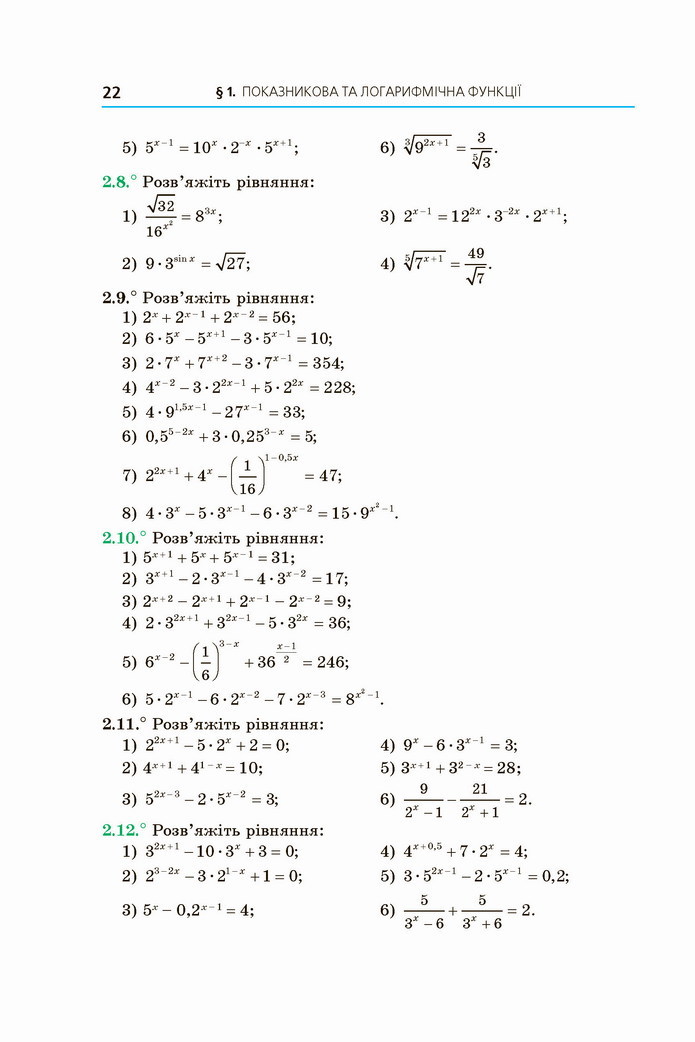 22 § 1. ПОКАЗНИКОВА ТА ЛОГАРИФМІЧНА ФУНКЦІЇ
5) 5^{x−1} = 10^x · 2^{−x} · 5^{x+1}; 6) \sqrt[3]{9^{2x+1}} = \frac{3}{\sqrt[5]{3}}.
2.8.° Розв’яжіть рівняння:
1) \frac{\sqrt{32}}{16^{x^2}} = 8^{3x}; 3) 2^{x−1} = 12^{2x} · 3^{−2x} · 2^{x+1};
2) 9 · 3^{sin x} = \sqrt{27}; 4) \sqrt[5]{7^{x+1}} = \frac{49}{\sqrt{7}}.
2.9.° Розв’яжіть рівняння:
1) 2^x + 2^{x−1} + 2^{x−2} = 56;
2) 6 · 5^x − 5^{x+1} − 3 · 5^{x−1} = 10;
3) 2 · 7^x + 7^{x+2} − 3 · 7^{x−1} = 354;
4) 4^{x−2} − 3 · 2^{2x−1} + 5 · 2^{2x} = 228;
5) 4 · 9^{1,5x−1} − 27^{x−1} = 33;
6) 0,5^{5−2x} + 3 · 0,25^{3−x} = 5;
7) 2^{2x+1} + 4^x − \left(\frac{1}{16}\right)^{1−0,5x} = 47;
8) 4 · 3^x − 5 · 3^{x−1} − 6 · 3^{x−2} = 15 · 9^{x^2−1}.
2.10.° Розв’яжіть рівняння:
1) 5^{x+1} + 5^x + 5^{x−1} = 31;
2) 3^{x+1} − 2 · 3^{x−1} − 4 · 3^{x−2} = 17;
3) 2^{x+2} − 2^{x+1} + 2^{x−1} − 2^{x−2} = 9;
4) 2 · 3^{2x+1} + 3^{2x−1} − 5 · 3^{2x} = 36;
5) 6^{x−2} − \left(\frac{1}{6}\right)^{3−x} + 36^{\frac{x−1}{2}} = 246;
6) 5 · 2^{x−1} − 6 · 2^{x−2} − 7 · 2^{x−3} = 8^{x^2−1}.
2.11.° Розв’яжіть рівняння:
1) 2^{2x+1} − 5 · 2^x + 2 = 0; 4) 9^x − 6 · 3^{x−1} = 3;
2) 4^{x+1} + 4^{1−x} = 10; 5) 3^{x+1} + 3^{2−x} = 28;
3) 5^{2x−3} − 2 · 5^{x−2} = 3; 6) \frac{9}{2^x − 1} − \frac{21}{2^x + 1} = 2.
2.12.° Розв’яжіть рівняння:
1) 3^{2x+1} − 10 · 3^x + 3 = 0; 4) 4^{x+0,5} + 7 · 2^x = 4;
2) 2^{3−2x} − 3 · 2^{1−x} + 1 = 0; 5) 3 · 5^{2x−1} − 2 · 5^{x−1} = 0,2;
3) 5^x − 0,2^{x−1} = 4; 6) \frac{5}{3^x − 6} + \frac{5}{3^x + 6} = 2.